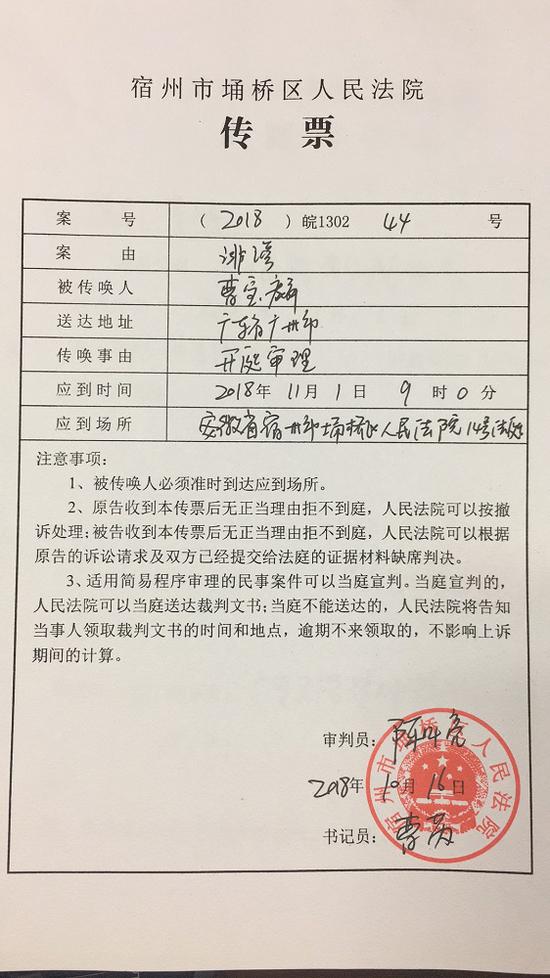 宿州市埇桥区人民法院
传 票
案 号 ( 2018 ) 皖1302 44 号
案 由 诽谤
被传唤人 曹宝麟
送达地址 广东省广州市
传唤事由 开庭审理
应到时间 2018年 11月 1日 9时0分
应到场所 安徽省宿州市埇桥区人民法院14号法庭
注意事项:
1、被传唤人必须准时到达应到场所。
2、原告收到本传票后无正当理由拒不到庭,人民法院可以按撤
诉处理;被告收到本传票后无正当理由拒不到庭,人民法院可以根据
原告的诉讼请求及双方已经提交给法庭的证据材料缺席判决。
3、适用简易程序审理的民事案件可以当庭宣判。当庭宣判的,
人民法院可以当庭送达裁判文书;当庭不能送达的,人民法院将告知
当事人领取裁判文书的时间和地点,逾期不来领取的,不影响上诉
期间的计算。
审判员:
2018年 10月 16日
书记员: 曹
宿州市埇桥区人民法院